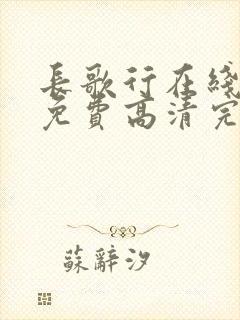 長歌行在綫
免費高清完
蘇辭汐